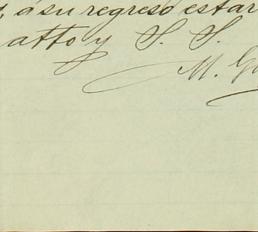 , á su regreso estar
atto y S. S.
M. Go